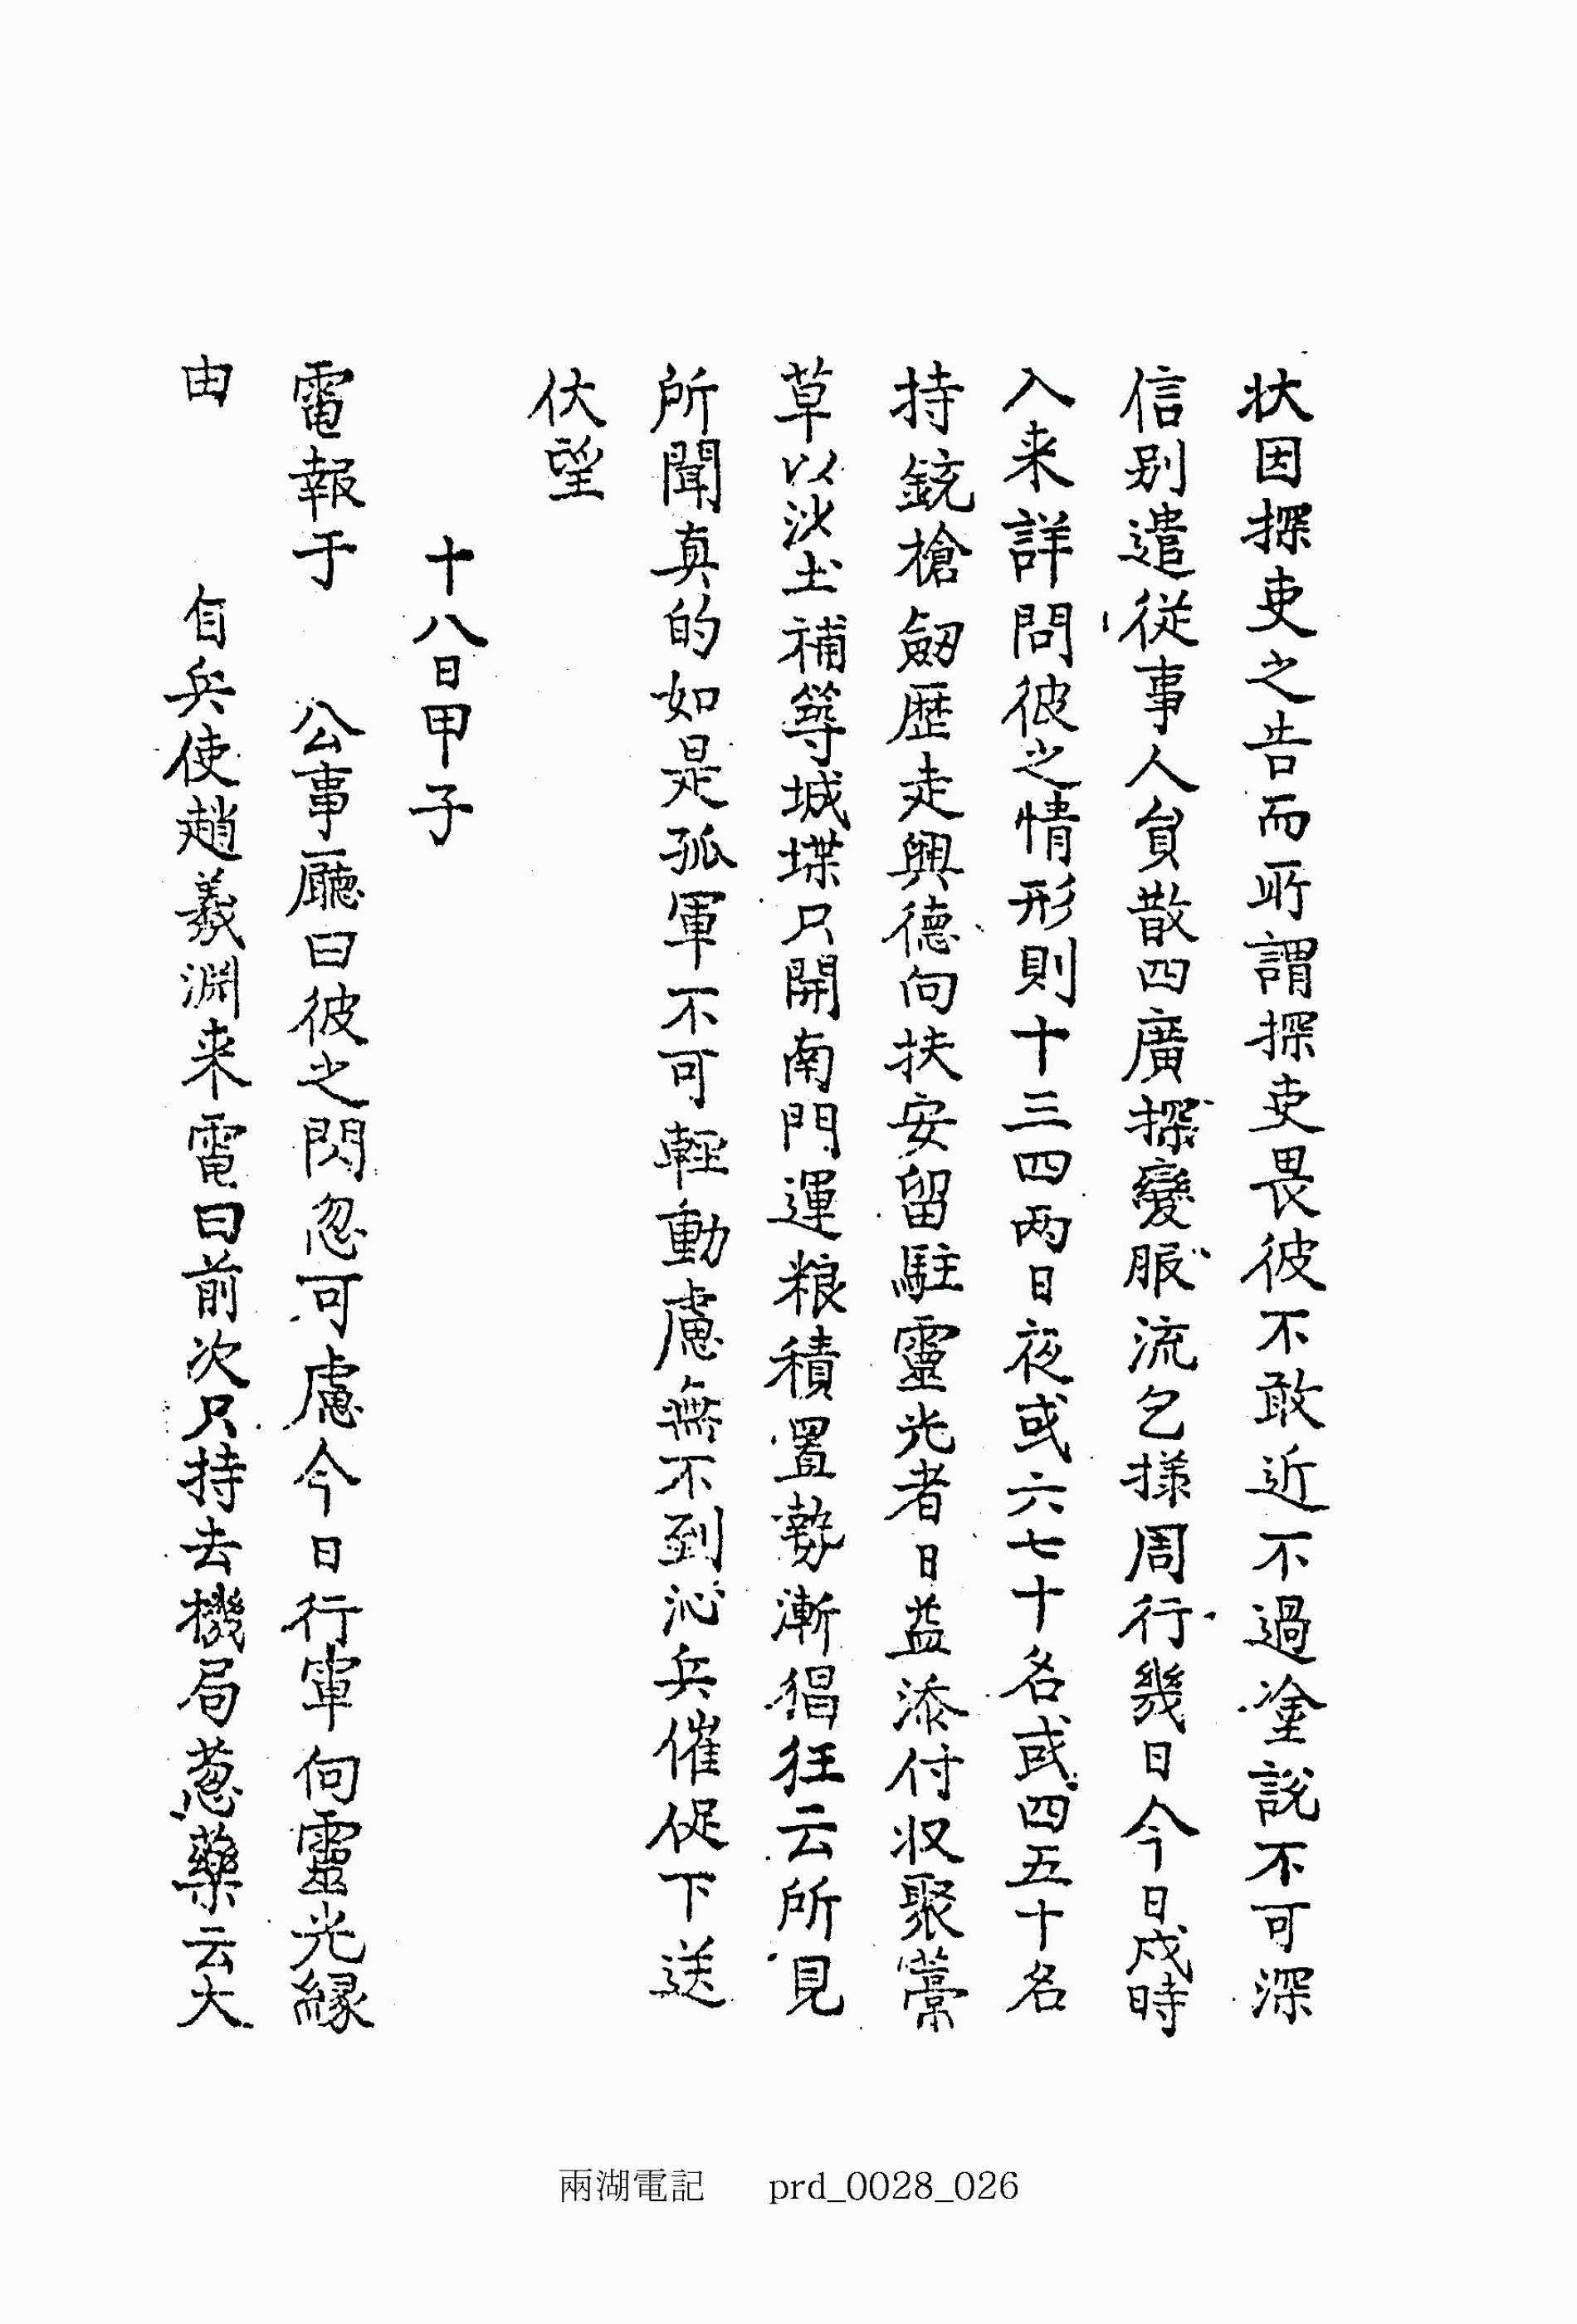 状因探吏之告而所謂探吏畏彼不敢近不過塗説不可深
信別遣従事人貟散四廣探變服流乞様周行幾日今日戌時
入来詳問彼之情形則十三四両日夜或六七十名或四五十名
持銃槍劒歴走興德向扶安留駐靈光者日益添付収聚藁
草以沙土補等城堞只開南門運粮積置勢漸猖狂云所見
所聞真的如是孤軍不可輕動慮無不到沁兵催促下送
伏望
十八日甲子
電報于 公事廳曰彼之閃忽可慮今日行軍向靈光縁
由 自兵使趙羲淵来電曰前次只持去機局葱藥云大
兩湖電記 prd_0028_026